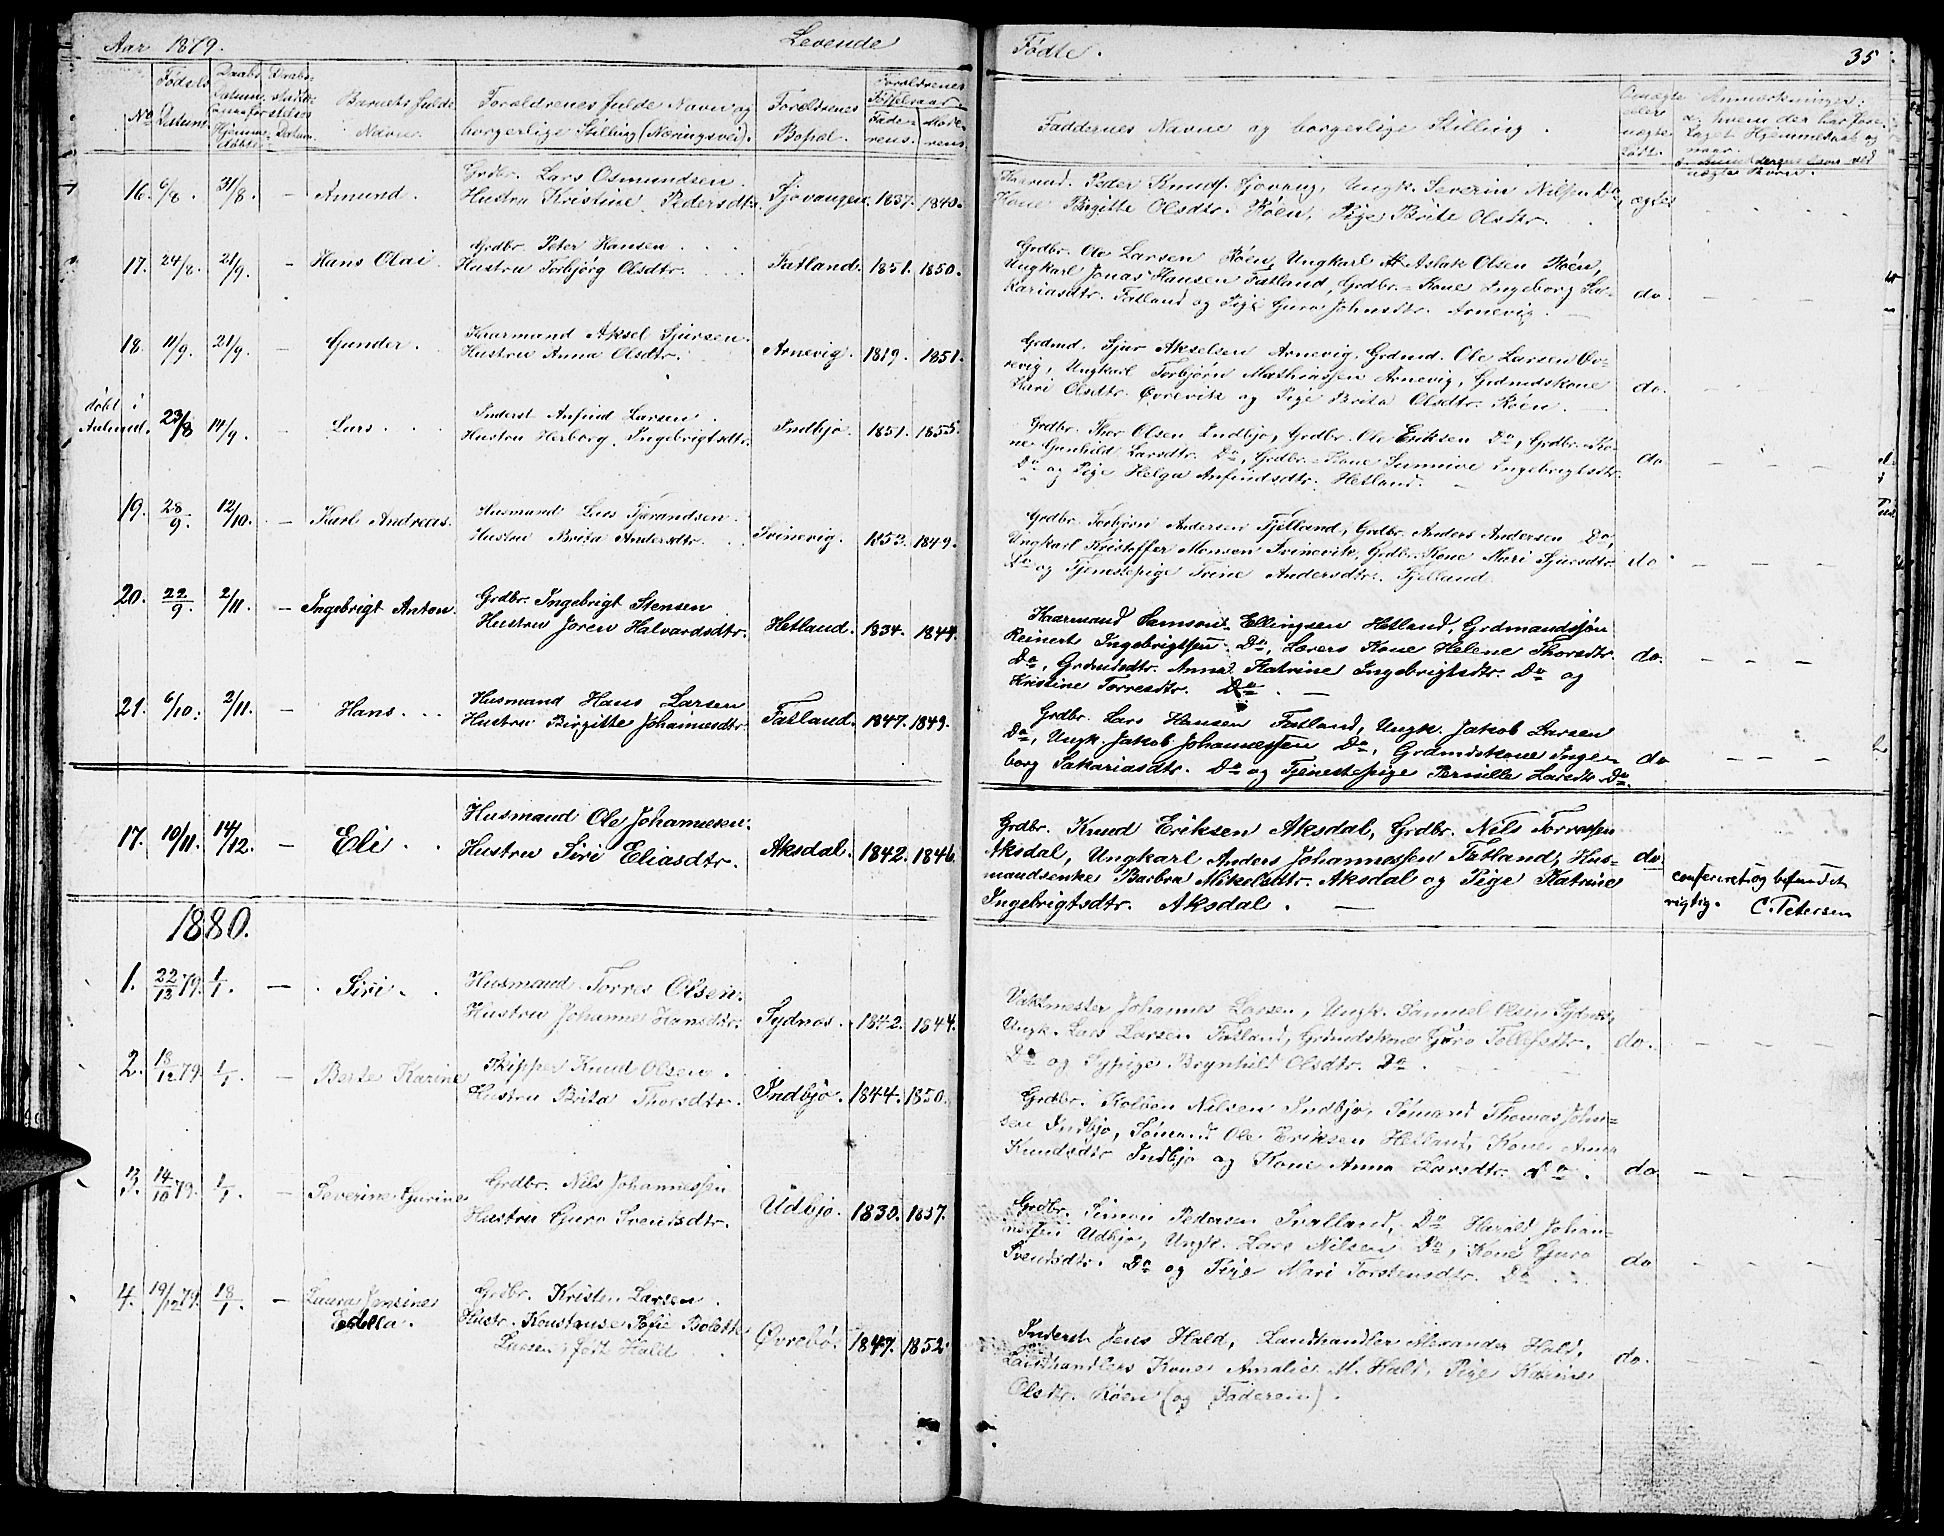 Aar 1879. Levende Fødte. 35
No Fødsels Datum. Daabs Datum Barnets fulde Navn. Forældrenes fulde Navn og borgerlige Stilling (Næringsvei). Forældrenes Bopæl. Forældrenes Fødselsaar Faderens. Moderens. Faddernes Navne og borgerlige Stilling. Anmærkninger:
16. 6/8. 31/8. – Amund. Grdbr. Lars Osmundsen.
Hustru Kristine Pedersdtr. 1837. 1840.
Ungk. Severin
Kone Birgitte Olsdtr. Røen, Pige Brite Olsdtr. ægte
17. 24/8. 21/9. – Hans Olai. Grdbr. Peter Hansen.
Hustru Torbjörg Olsdtr. Fatland. 1851. 1850.
Grdbr. Ole Larsen Røen, Ungkarl Aslak Olsen Røen,
Ungkarl Jonas Hansen Fatland, Grdbr.-Kone Ingeborg Sa-
kariasdtr. Fatland og Pige Guro Johnsdtr. Arnevig. do.
18. 11/9. 21/9. – Gunder. Kaarmand Aksel Sjursen.
Hustru Anna Olsdtr. Arnevig. 1819. 1851.
Grdmd. Sjur Akselsen Arnevig. Grdmd. Ole Larsen Øv-
revig, Ungkarl Torbjørn Mathiassen Arnevig, Grdmdskone
Kari Olsdtr. Øvrevik og Pige Brita Olsdtr. Røen. do.
døbt i Aalund. 23/8 14/9. – Lars. Inderst Anfind Larsen.
Hustru Herborg Ingebrigtsdtr. Indbjo. 1851. 1855.
Grdbr. Thor Olsen Indbjo, Grdbr. Ole Eriksen Do, Grdbr.-Ko-
ne Gunhild Larsdtr. Do, Grdbr.-Kone Sunnive Ingebrigtsdtr.
Do og Pige Helga Anfindsdtr. Hetland. do
19. 28/9. 12/10. – Karl Andreas. Husmand Lars Tjerandsen.
Hustru Brita Andersdtr. Svinevig. 1853. 1849.
Grdbr. Torbjörn Andersen Fjelland, Grdbr. Anders Andersen Do,
Ungkarl Kristoffer Monsen Svinevik, Grdbr. Kone Mari Sjursdtr.
Do og Tjenestepige Trine Andersdtr. Fjelland do
20. 22/9. 2/11. – Ingebrigt Anton. Grdbr. Ingebrigt Stensen
Hustru Joren Halvardsdtr. Hetland. 1834. 1844.
Kaarmand Samson Ellingsen Hetland, Grdmandssøn
Reinert Ingebrigtsen Do, Lærers Kone Helene Thorsdtr.
Do, Grdmdsdtr. Anna Katrine Ingebrigtsdtr. Do og
Kristine Torresdtr. Do. do.
21. 6/10. 2/11. – Hans. Husmand Hans Larsen
Hustru Birgitte Johannesdtr. Fatland. 1847. 1849.
Grdbr. Lars Hansen Fatland, Ungk. Jakob Larsen
Do, Ungk. Jakob Johannessen Do, Grdmdskone Inge-
borg Sakariasdtr. Do og Tjenestepige Pernille Larsdtr. Do. do
17. 10/11. 14/12. – Eli. Husmand Ole Johannesen.
Hustru Siri Eliasdtr. Aksdal. 1842. 1846.
Grdbr. Knud Eriksen Aksdal, Grdbr. Nils Torressen
Aksdal, Ungkarl Anders Johannessen Fatland, Hus-
mandsenke Barbra Mikelsdtr. Aksdal og Pige Katrine
Ingebrigtsdtr. Aksdal. do.
confereret og befundet
rigtig. C. Petersen
1880.
1. 22/12 79. 1/1. – Siri. Husmand Torres Olsen.
Hustru Johanne Hansdtr. Sydnes. 1842. 1844.
Vaktmester Johannes Larsen, Ungk. Samuel Olsen Sydnes,
Ungk. Lars Larsen Fatland, Grdmdskone Guro Tollefsdtr.
Do og Sypige Brynhild Olsdtr. Do. do.
2. 18/12 79. 1/1. – Berte Karine Skipper Knud Olsen.
Hustru Brita Thorsdtr. Indbjo. 1844. 1850.
Grdbr. Kolbøn Nilsen Indbjo, Sømand Thomas John-
sen Indbjo, Sømand Ole Eriksen Hetland, Kone Anna
Knudsdtr. Indbjo og Kone Anna Larsdtr. Do. do.
3. 14/10 79. 1/1. – Severine Gurine Grdbr. Nils Johannessen
Hustru Guro Svendsdtr. Udbjo. 1830. 1837.
Grdbr. Simon Pedersen Do Harald Johan-
nessen Udbjo, Ungk. Lars Nilsen Do, Kone Guro
Svendsdtr. Do og Pige Mari Torstensdtr. Do. do
4. 19/10 79. 18/1. – Laura Jensine Grdbr. Kristen Larsen.
Hustr. Konstanse Sofie Bolette
Larsen født Hald Øvrebö. 1847. 1852.
Inderst Jens Hald, Landhandler Alexander Hald,
Landhandlers Kone Amalie M. Hald, Pige Karine
Olsdtr. Røen (og Faderen). do.